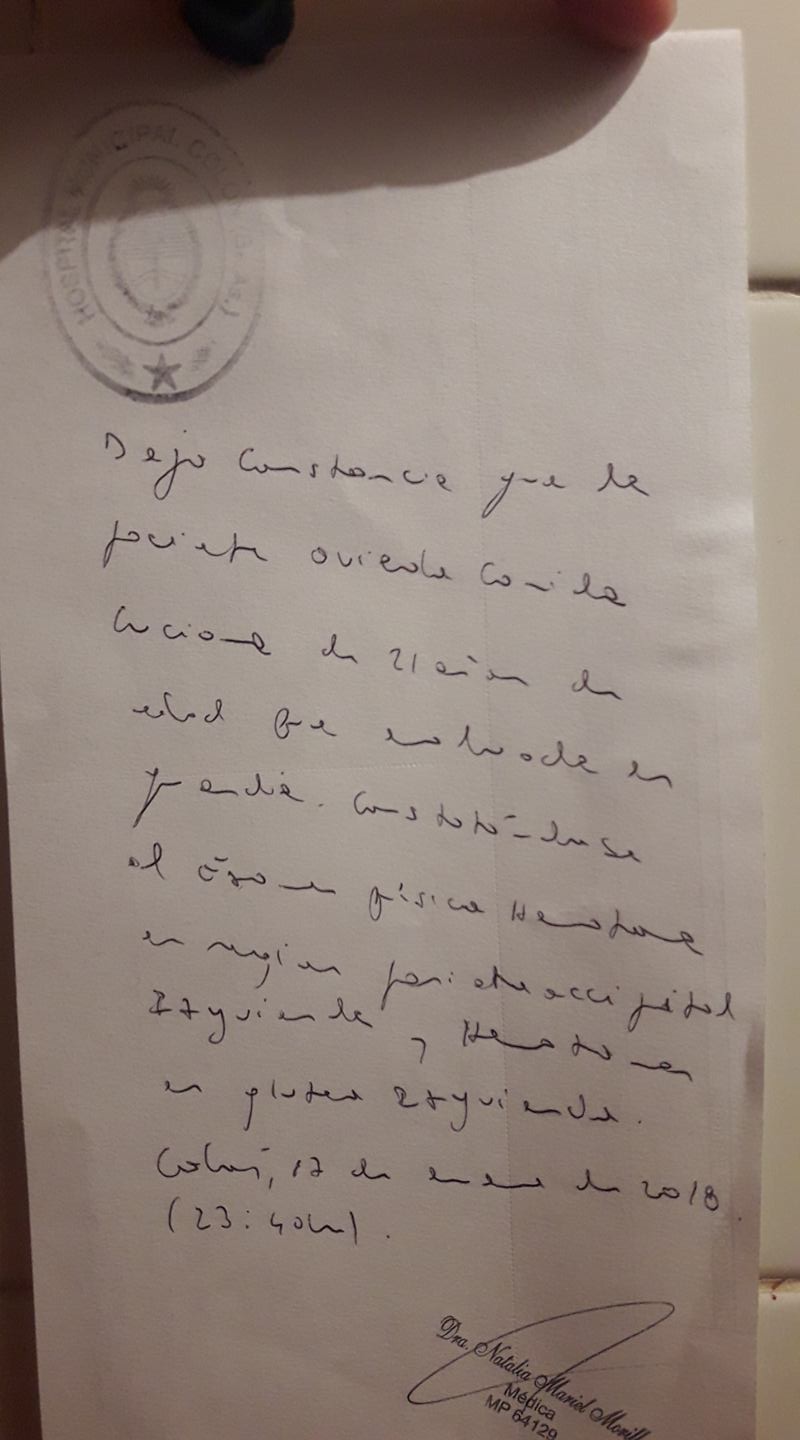 HOSPITAL MUNICIPAL COLON (Bs. As.)
Dejo Constancia que la
paciente Oviedo Camila
Luciana de 21 años de
edad fue evaluada en
guardia. Constatándose
al Examen físico Hematoma
en region parieto occipital
Izquierda y Hematoma
en gluteo Izquierdo.
Colón, 17 de enero de 2018
(23:40hs).
Dra. Natalia Mariel Morill
Médica
MP 64129